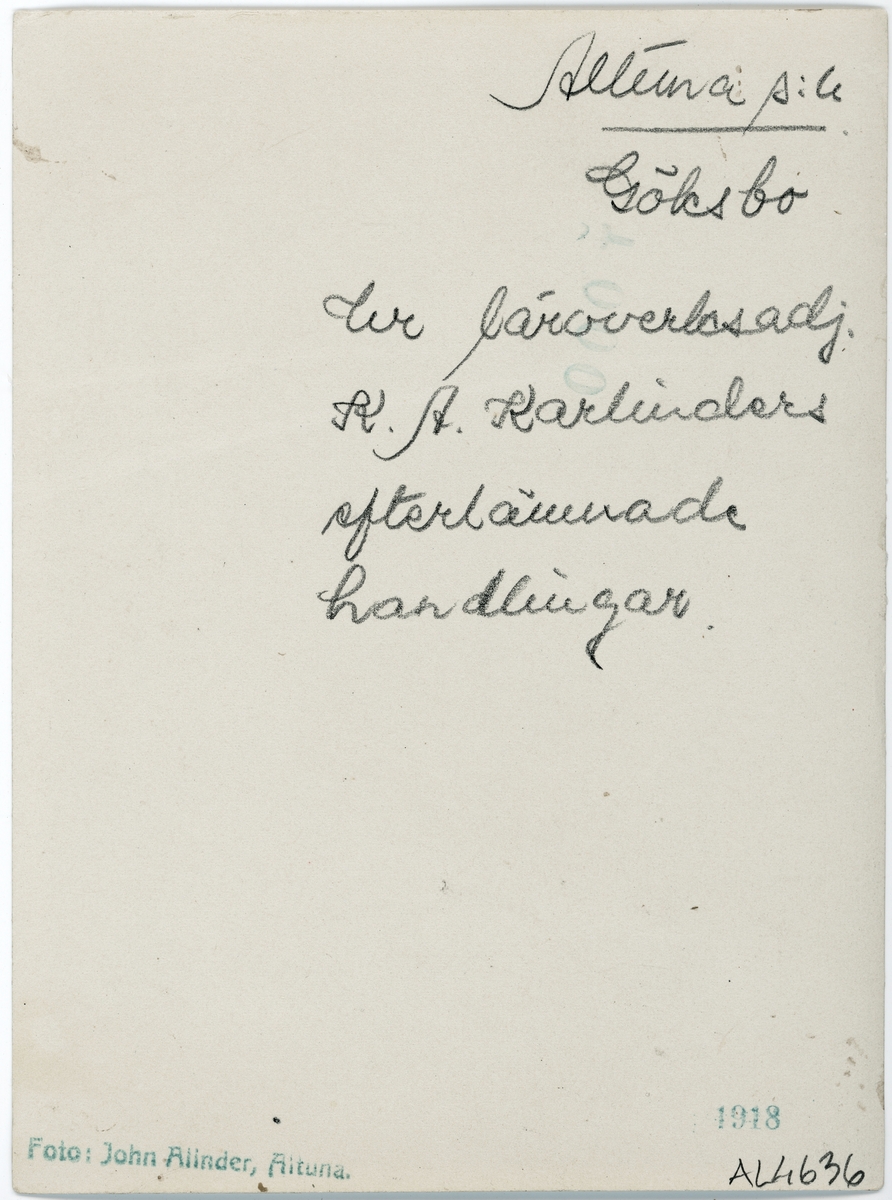 Altuna s:n
Göksbo
Ur läroverksadj.
K. A. Karlinders
efterlämnade
handlingar.
1918
Foto: John Alinder, Altuna.
AL4636